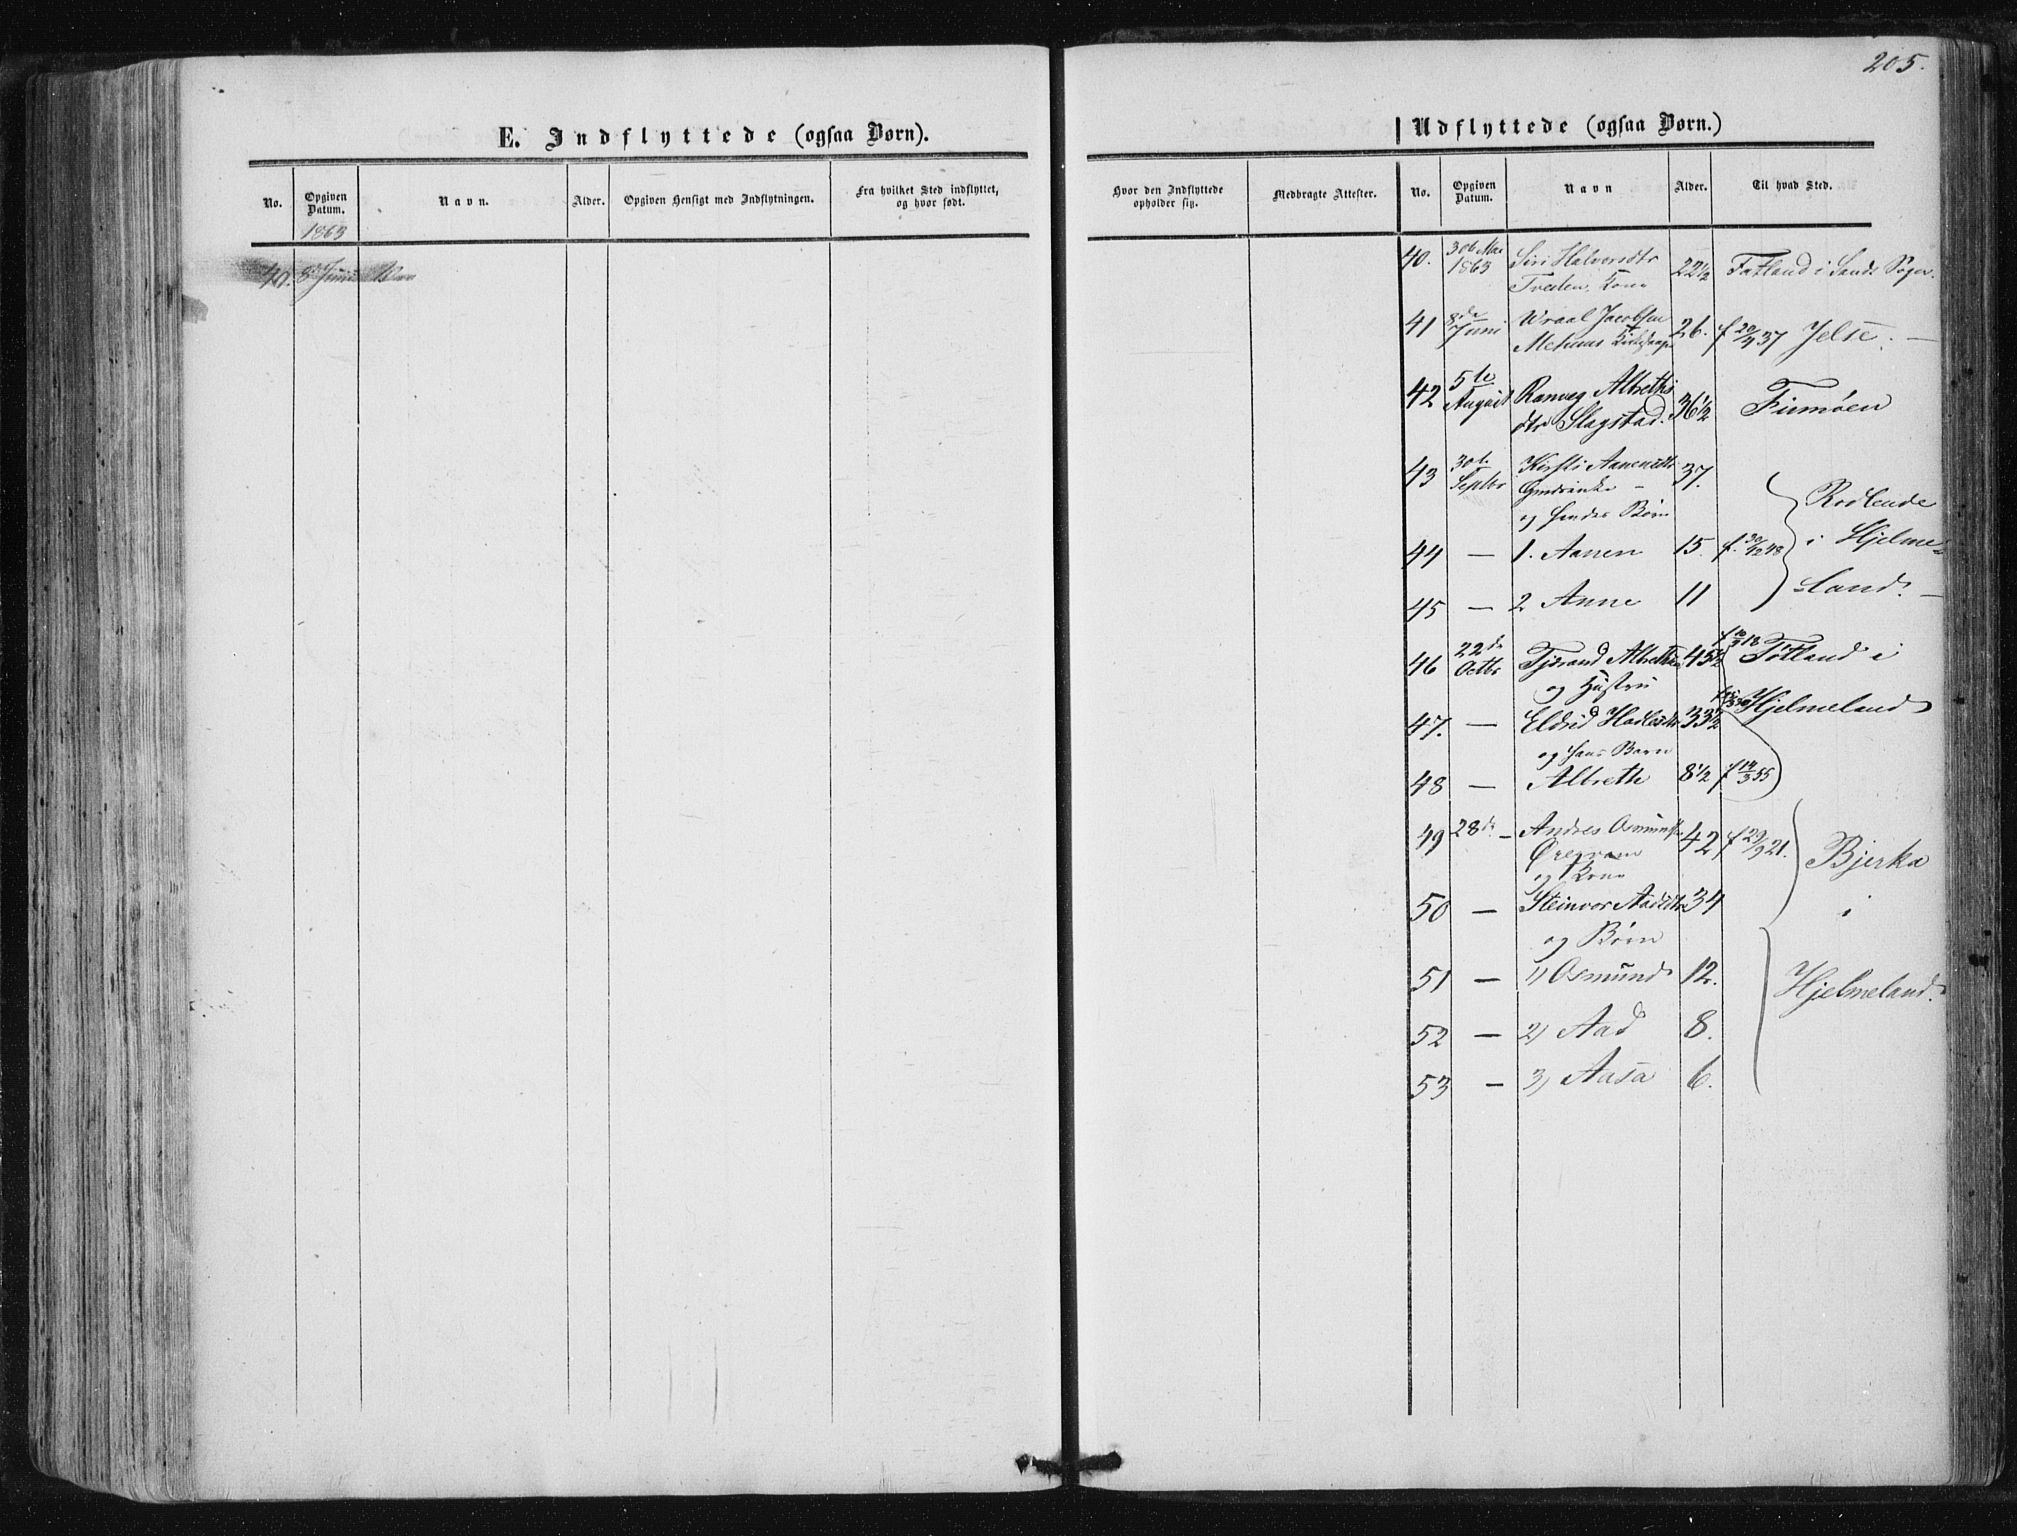 205.
E. Indflyttede (ogsaa Børn).
No. Opgiven Datum. Navn. Alder. Opgiven Hensigt med Indflytningen. Fra hvilket Sted indflyttet, og hvor født.
1863
40. 8de Juni
Udflyttede (ogsaa Børn.)
Hvor den Indflyttede opholder sig. Medbragte Attester. No. Opgiven Datum. Navn Alder. Til hvad Sted.
40. 30te Mai 1863 Siri Halvorsdtr 22½ Fatland i Sands Sogn.
Tveden, Kone
41 8de Juni Wraal Jacobsen 26. f 20/4 37 Jelse. —
Mehuus
42 5te August Ranveg Albreths 36½ Finnøen
dtr Slagstad.
43 30te Septbr Kirsti Aanensdtr 37.
og hendes Børn
Rodlende
i Hjelme-
land. —
44 — 1. Aanen 15. f. 30/12 48
45 — 2 Anne 11
46 22de Octbr Tjerand Albrethsen 45½ f 10/3 18 Tøtland i
og Hustru
47. — Eldrid Hadlesdtr 33½ Hjelmeland
og hans Barn
48 — Albreth 8½ f 14/3 55
49 28de — Andres Osmundsen 42 f 29/9 21. Bjerka
og Kone
50 — Steinvor Aadsdtr 34 i
og Børn
51 — 1) Osmund 12. Hjelmeland.
52 — 2) Aad 8.
53 — 3) Aasa 6.